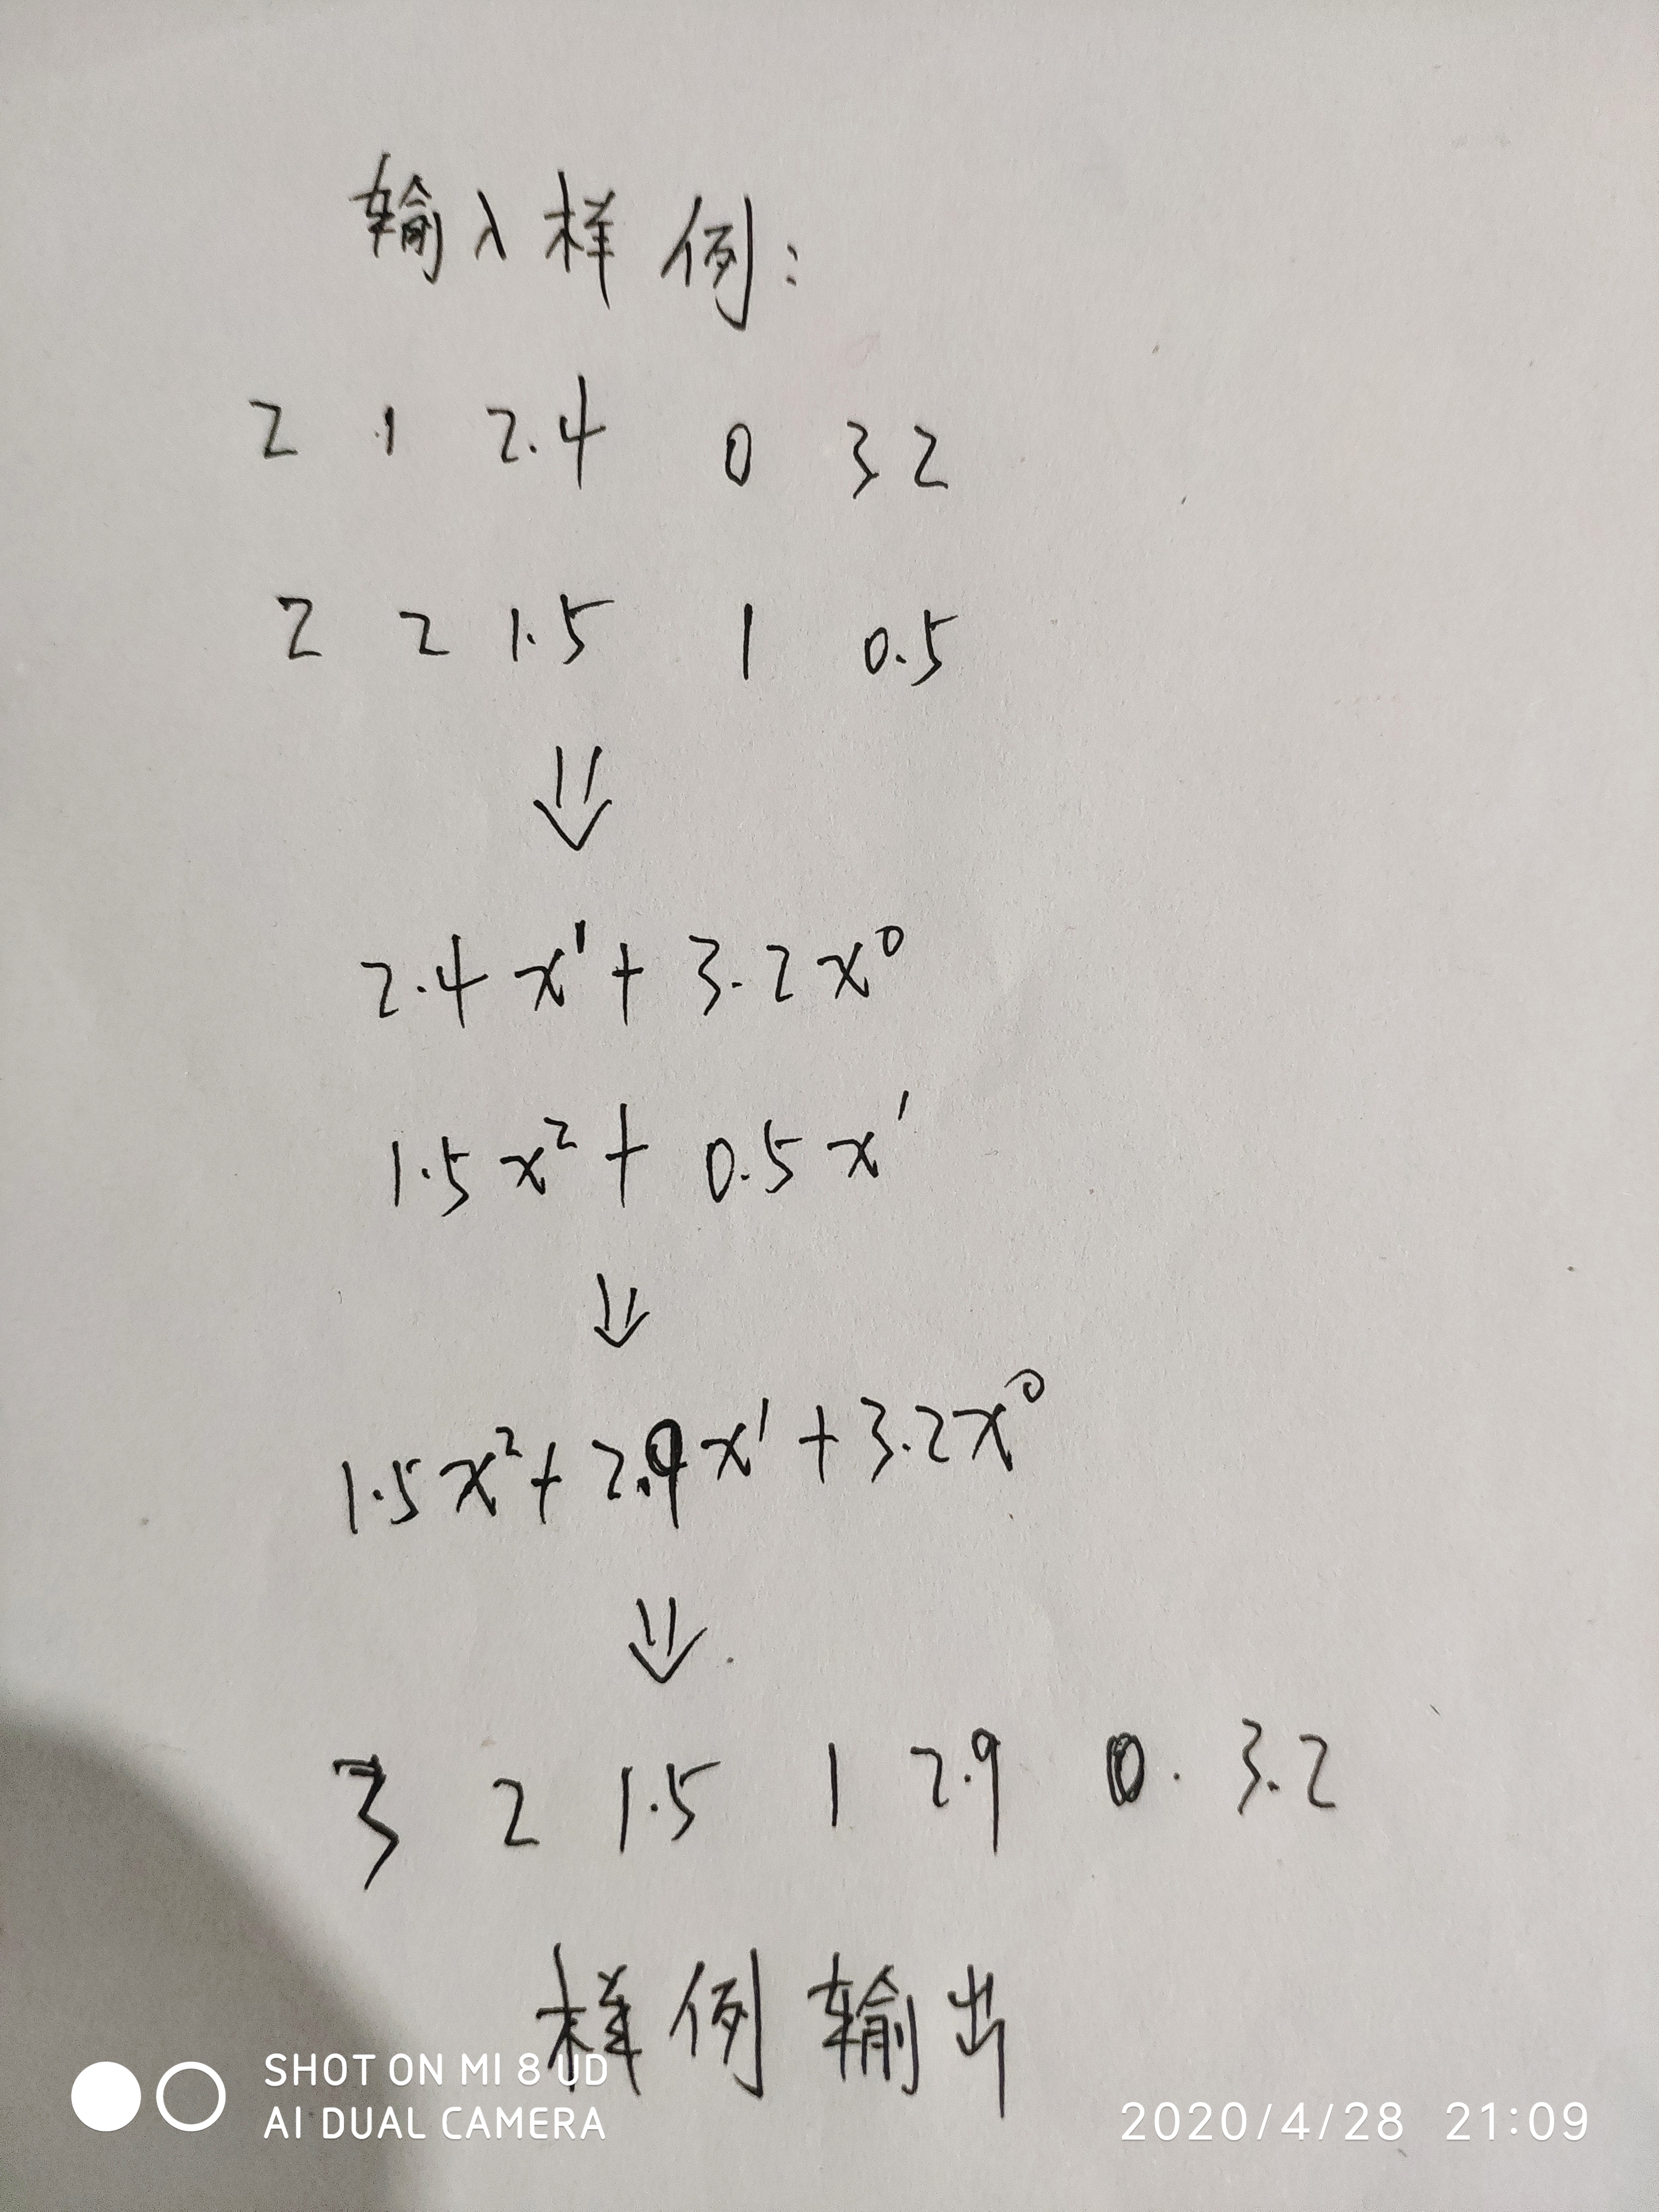 输入样例:
2 1 2.4 0 3 2
2 2 1.5 1 0.5
⇓
2.4x¹+3.2x⁰
1.5x²+0.5x¹
⇓
1.5x²+2.9x¹+3.2x⁰
⇓
3 2 1.5 1 2.9 0. 3.2
样例输出
SHOT ON MI 8 UD
AI DUAL CAMERA
2020/4/28 21:09